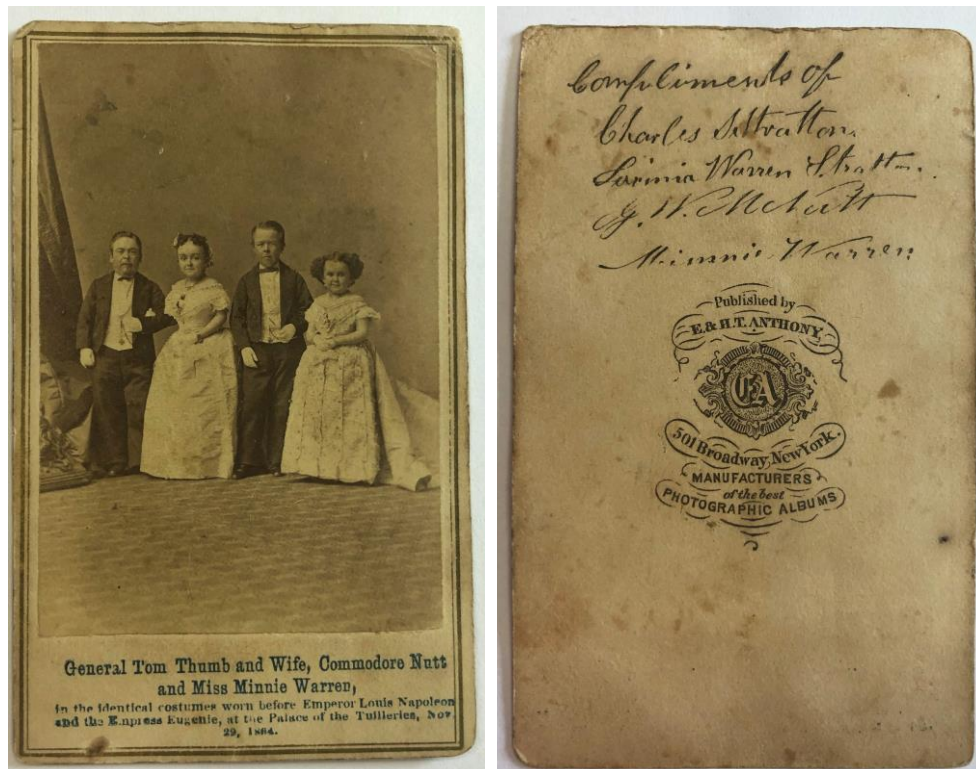 General Tom Thumb and Wife, Commodore Nutt
and Miss Minnie Warren,
in the identical costumes worn before Emperor Louis Napoleon
and the Empress Eugenie, at the Palace of the Tuilleries, Nov
29, 1864.
Compliments of
Charles S. Stratton.
Lavinia Warren Stratton.
G. W. M. Nutt
Minnie Warren
Published by
E. & H. T. ANTHONY,
EA
501 Broadway, New York.
MANUFACTURERS
of the best
PHOTOGRAPHIC ALBUMS